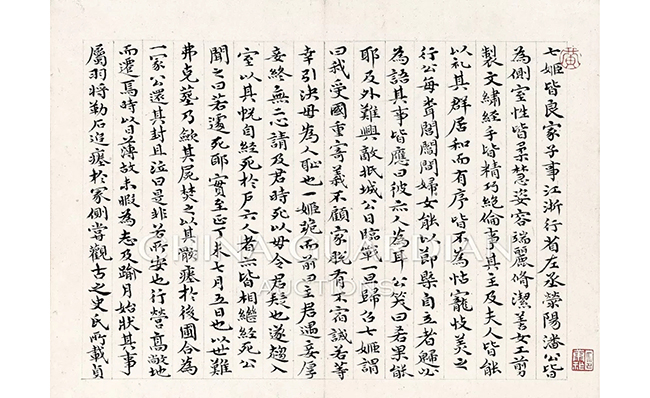 七姬皆良家子事江浙行省左丞滎陽潘公皆
為側室性皆柔慧姿容端麗脩潔善女工剪
製文繡經手皆精巧絕倫事其主及夫人皆能
以礼其群居和而有序皆不為怙寵忮美之
行公每聞閭閻婦女能以節槩自立者歸必
為語其事皆應曰彼亦人為耳公笑曰若果能
耶及外難興敵抵城公日臨戰一旦歸召七姬謂
曰我受國重寄義不顧家脫有不宿誡若等
幸引決毋為人恥也一姬跪而前曰主君遇妾厚
妾終無二心請及君時死以毋令君疑也遂趨入
室以其帨自經死於戶六人者亦皆相繼經死公
聞之曰若遽死耶實至正丁未七月五日也以世難
弗克墓乃斂其屍焚之以其骸瘞於後圃合為
一冢公還其封且泣曰是非若所安也行營高敞地
而遷焉時以日薄故未暇為志及踰月始狀其事
屬羽將勒石追瘞於冢側嘗觀古之史氏所載貞
CHINA GUARDIAN
AUCTIONS